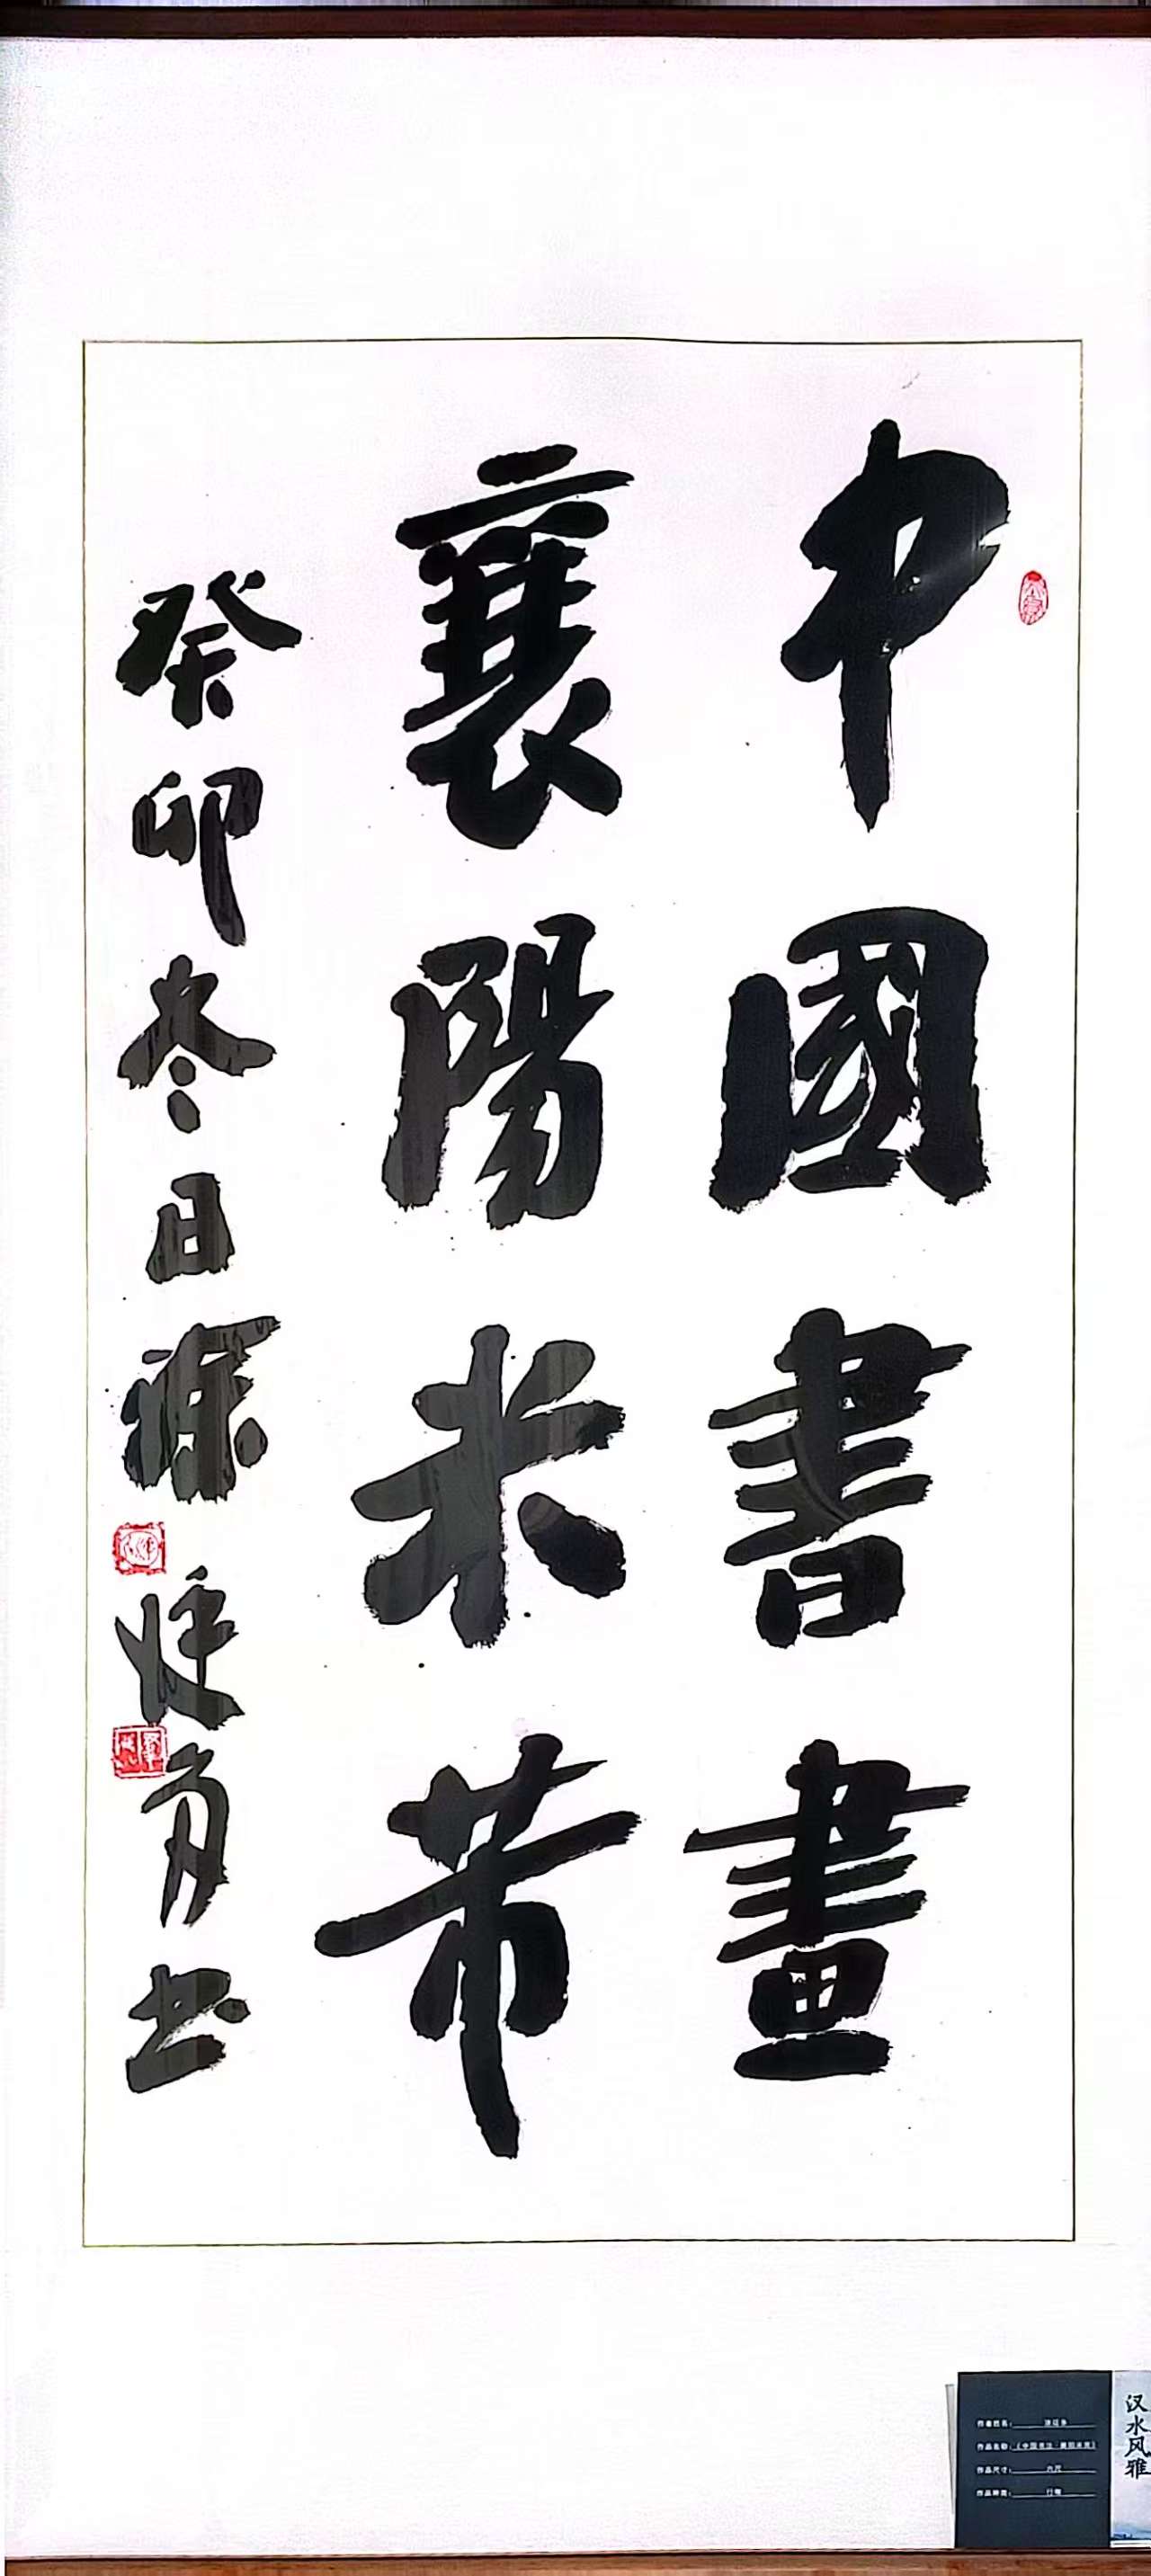 中國書畫
襄陽米芾
癸卯冬日
书
汉水风雅
作者姓名：
作品名称：《中国书法·襄阳米芾》
作品尺寸：六尺
作品种类：行楷